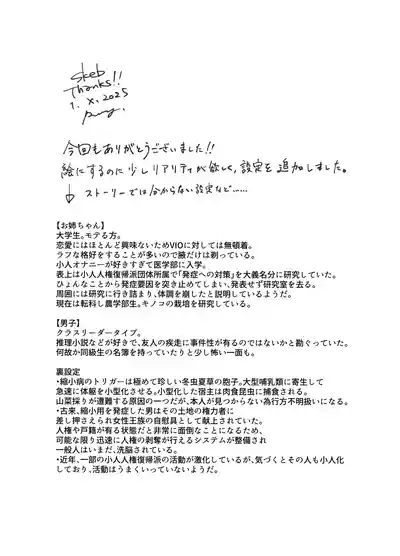 Skeb
Thanks!!
1. X. 2025
今回もありがとうございました!!
絵にするのに少しリアリティが欲しく、設定を追加しました。
↓ ストーリーでは分からない設定など……
【お姉ちゃん】
大学生。モテる方。
恋愛にはほとんど興味ないためVIOに対しては無頓着。
ラフな格好をすることが多いので腋だけは剃っている。
小人オナニーが好きすぎて医学部に入学。
表上は小人人権復帰派団体所属で「発症への対策」を大義名分に研究していた。
ひょんなことから発症要因を突き止めてしまい、発表せず研究室を去る。
周囲には研究に行き詰まり、体調を崩したと説明しているようだ。
現在は転科し農学部生。キノコの栽培を研究している。
【男子】
クラスリーダータイプ。
推理小説などが好きで、友人の疾走に事件性が有るのではないかと勘ぐっていた。
何故か同級生の名簿を持っていたりと少し怖い一面も。
裏設定
・縮小病のトリガーは極めて珍しい冬虫夏草の胞子。大型哺乳類に寄生して
急速に体躯を小型化させる。小型化した宿主は肉食昆虫に捕食される。
山菜採りが遭難する原因の一つだが、本人が見つからない為行方不明扱いになる。
・古来、縮小用を発症した男はその土地の権力者に
差し押さえられ女性王族の自慰具として献上されていた。
人権や戸籍が有る状態だと非常に面倒なことになるため、
可能な限り迅速に人権の剥奪が行えるシステムが整備され
一般人はいまだ、洗脳されている。
・近年、一部の小人人権復帰派の活動が激化しているが、気づくとその人も小人化
しており、活動はうまくいっていないようだ。